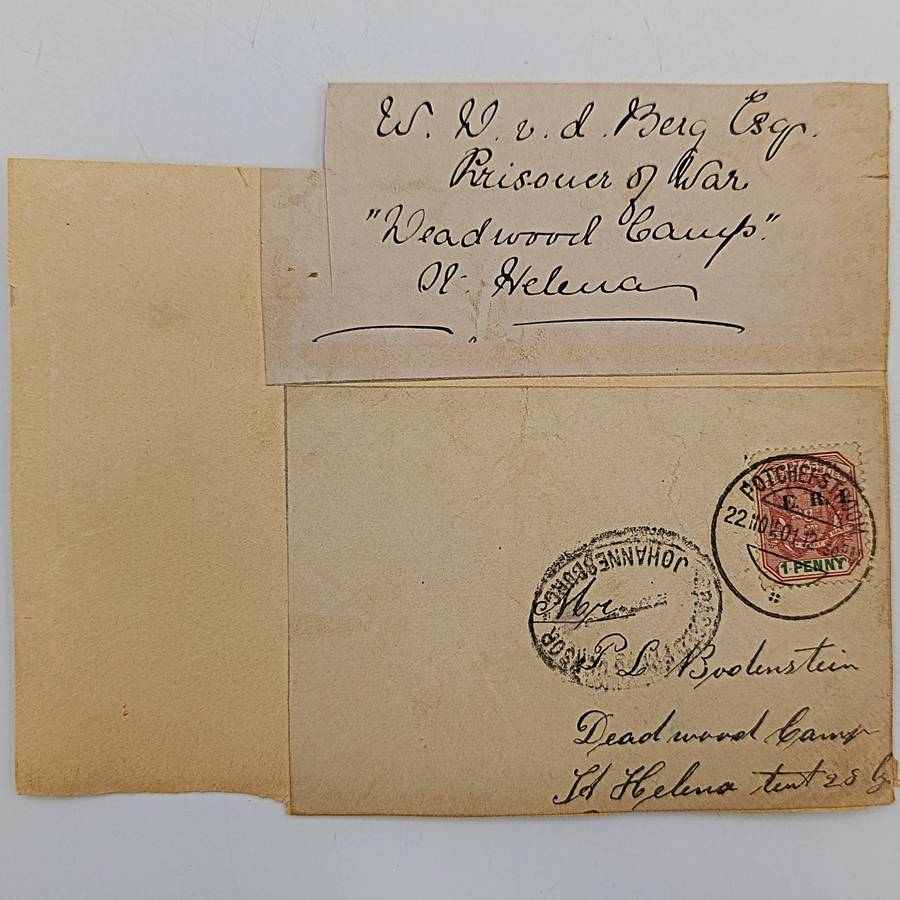 W. N. v. d. Berg Esqr.
Prisoner of War
"Deadwood Camp"
St. Helena
POTCHEFSTROOM
22 NOV 01
E. R. I
1 PENNY
JOHANNESBURG
Mr
P L Bodenstein
Deadwood Camp
St Helena tent 28